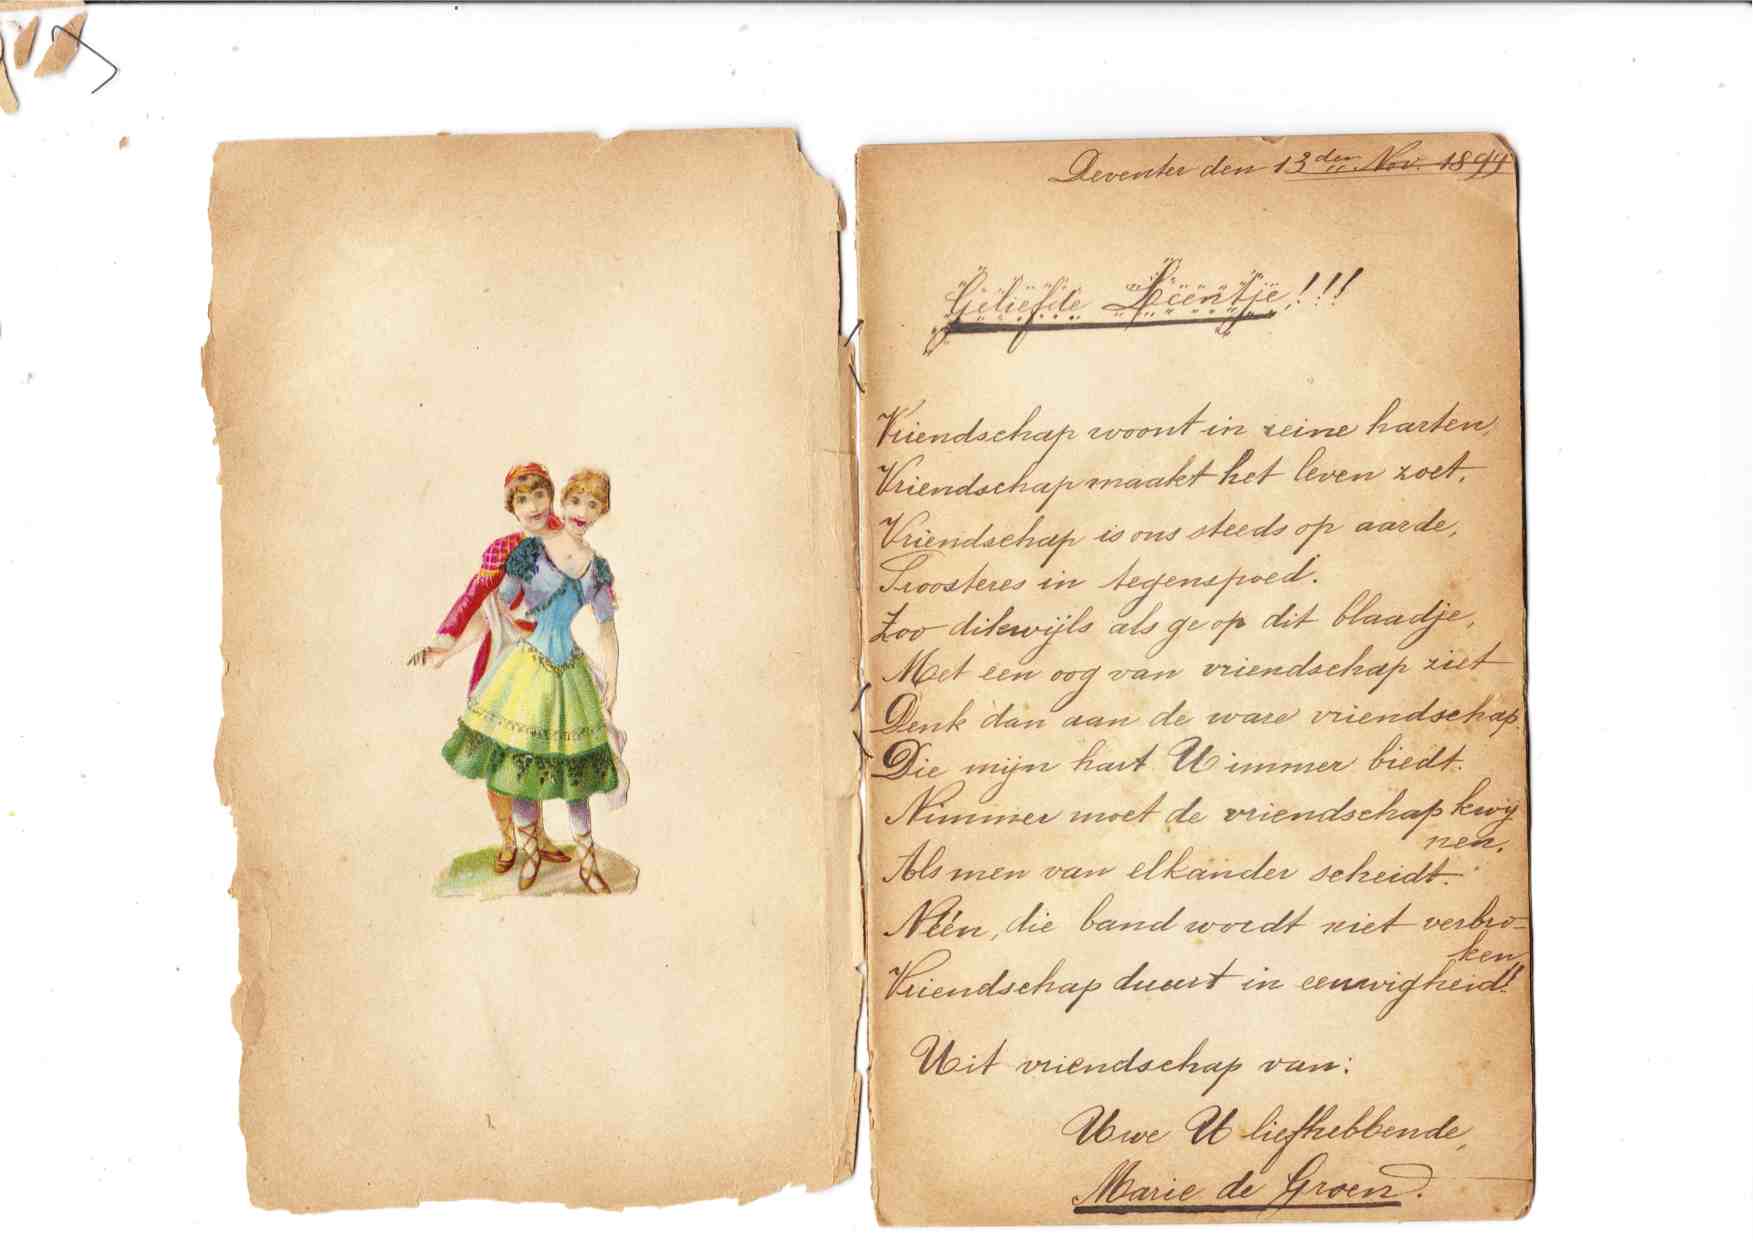 Deventer den 13den Nov. 1894
Geliefde Leentje!!!
Vriendschap woont in reine harten,
Vriendschap maakt het leven zoet,
Vriendschap is ons steeds op aarde,
Troosteres in tegenspoed.
Zoo dikwijls als ge op dit blaadje,
Met een oog van vriendschap ziet
Denk dan aan de ware vriendschap
Die mijn hart U immer biedt.
Nimmer moet de vriendschap kwij
nen.
Als men van elkander scheidt.
Néén, die band wordt niet verbro-
ken
Vriendschap duurt in eeuwigheid!
Uit vriendschap van:
Uwe U liefhebbende,
Marie de Groen.